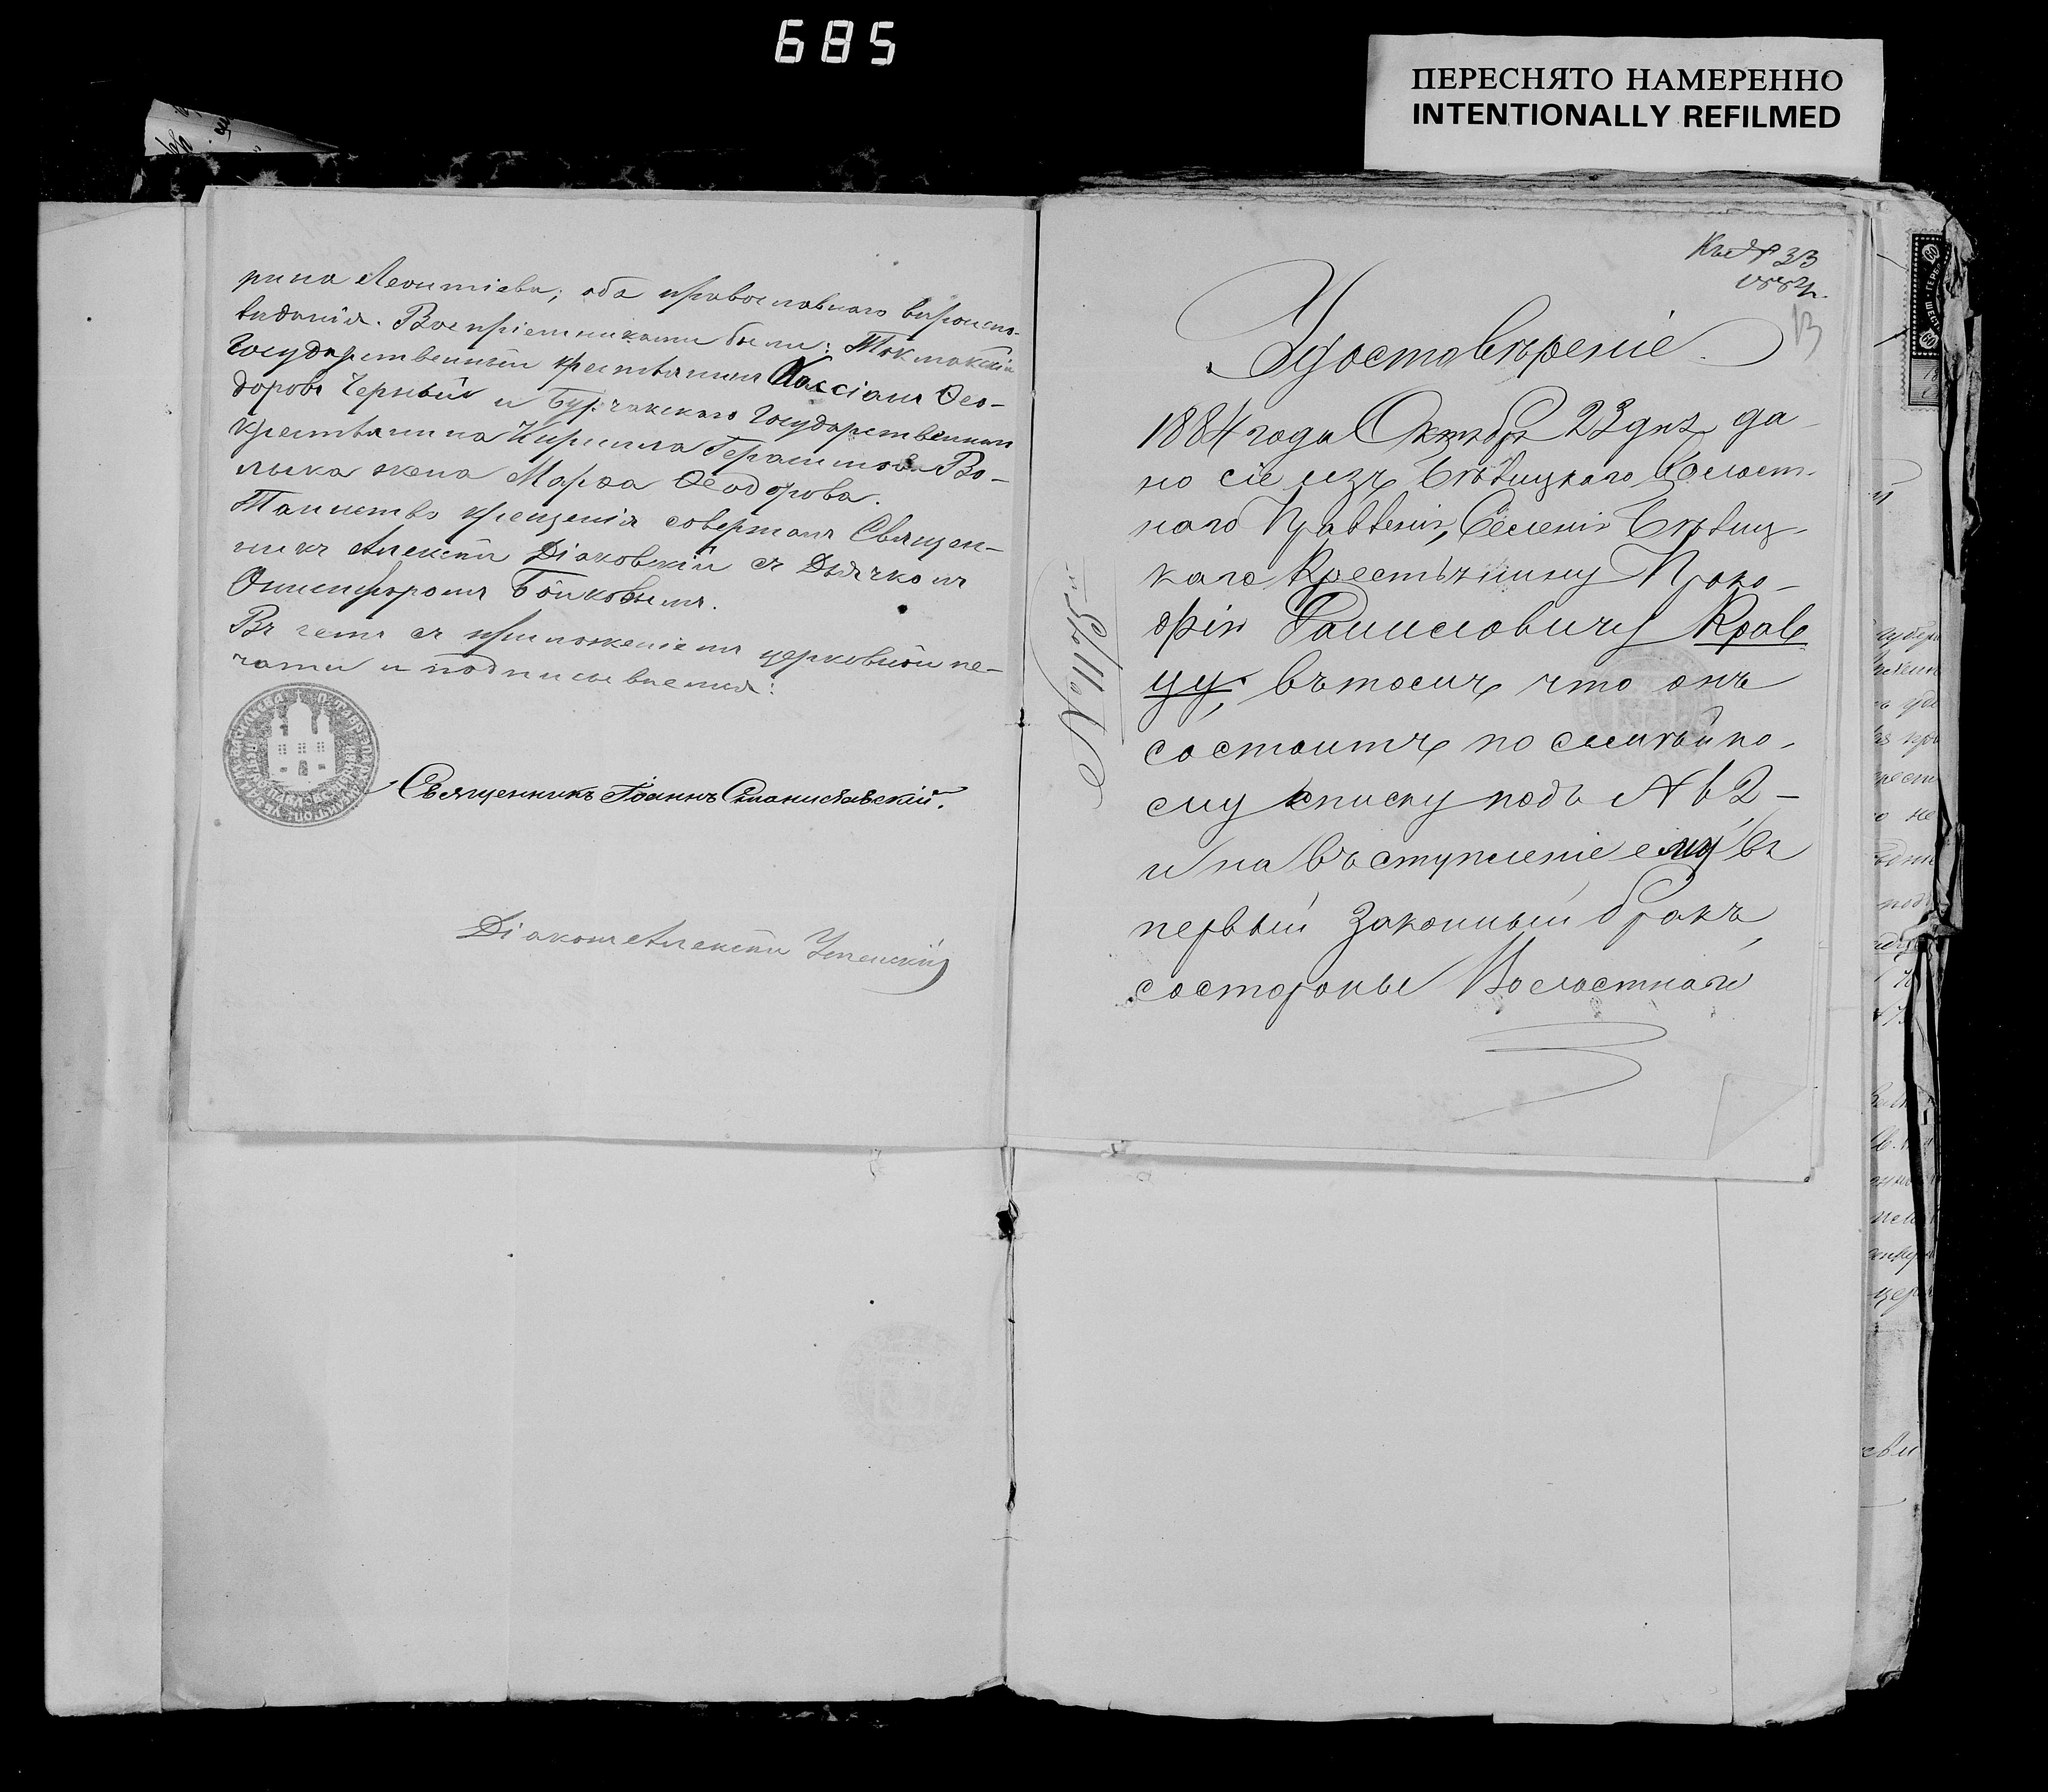 685
ПЕРЕСНЯТО НАМЕРЕННО
INTENTIONALLY REFILMED
рина Леонтіева; оба православнаго вѣроиспо-
вѣданія. Воспріемниками были: Токмакскій
Государственный крестьянинъ Кассіанъ Ѳео-
доровъ Черный и Бурчакскаго Государственнаго
крестьянина Кирилла Герасимова Во-
лыка жена Марѳа Ѳеодорова.
Таинство крещенія совершалъ Священ-
никъ Алексѣй Діаковскій съ Дьячкомъ
Онисифоромъ Бойковымъ.
Въ чемъ съ приложеніемъ церковной пе-
чати и подписываемся:
Священникъ Іоаннъ Станиславскій.
Діаконъ Алексѣй Успенскій
Къ № 33
1884 г.
13
Удостовѣреніе.
1884 года Октября 23 дня да-
но сіе изъ Волост-
наго Правленія, Селенія
каго Крестьянину Проко-
фію Даниловичу Крав
цу, въ томъ что онъ
состоитъ по семѣйно-
му списку подъ № 2 –
и на въступленіе ему въ
первый Законный бракъ,
состороны Волостнаго